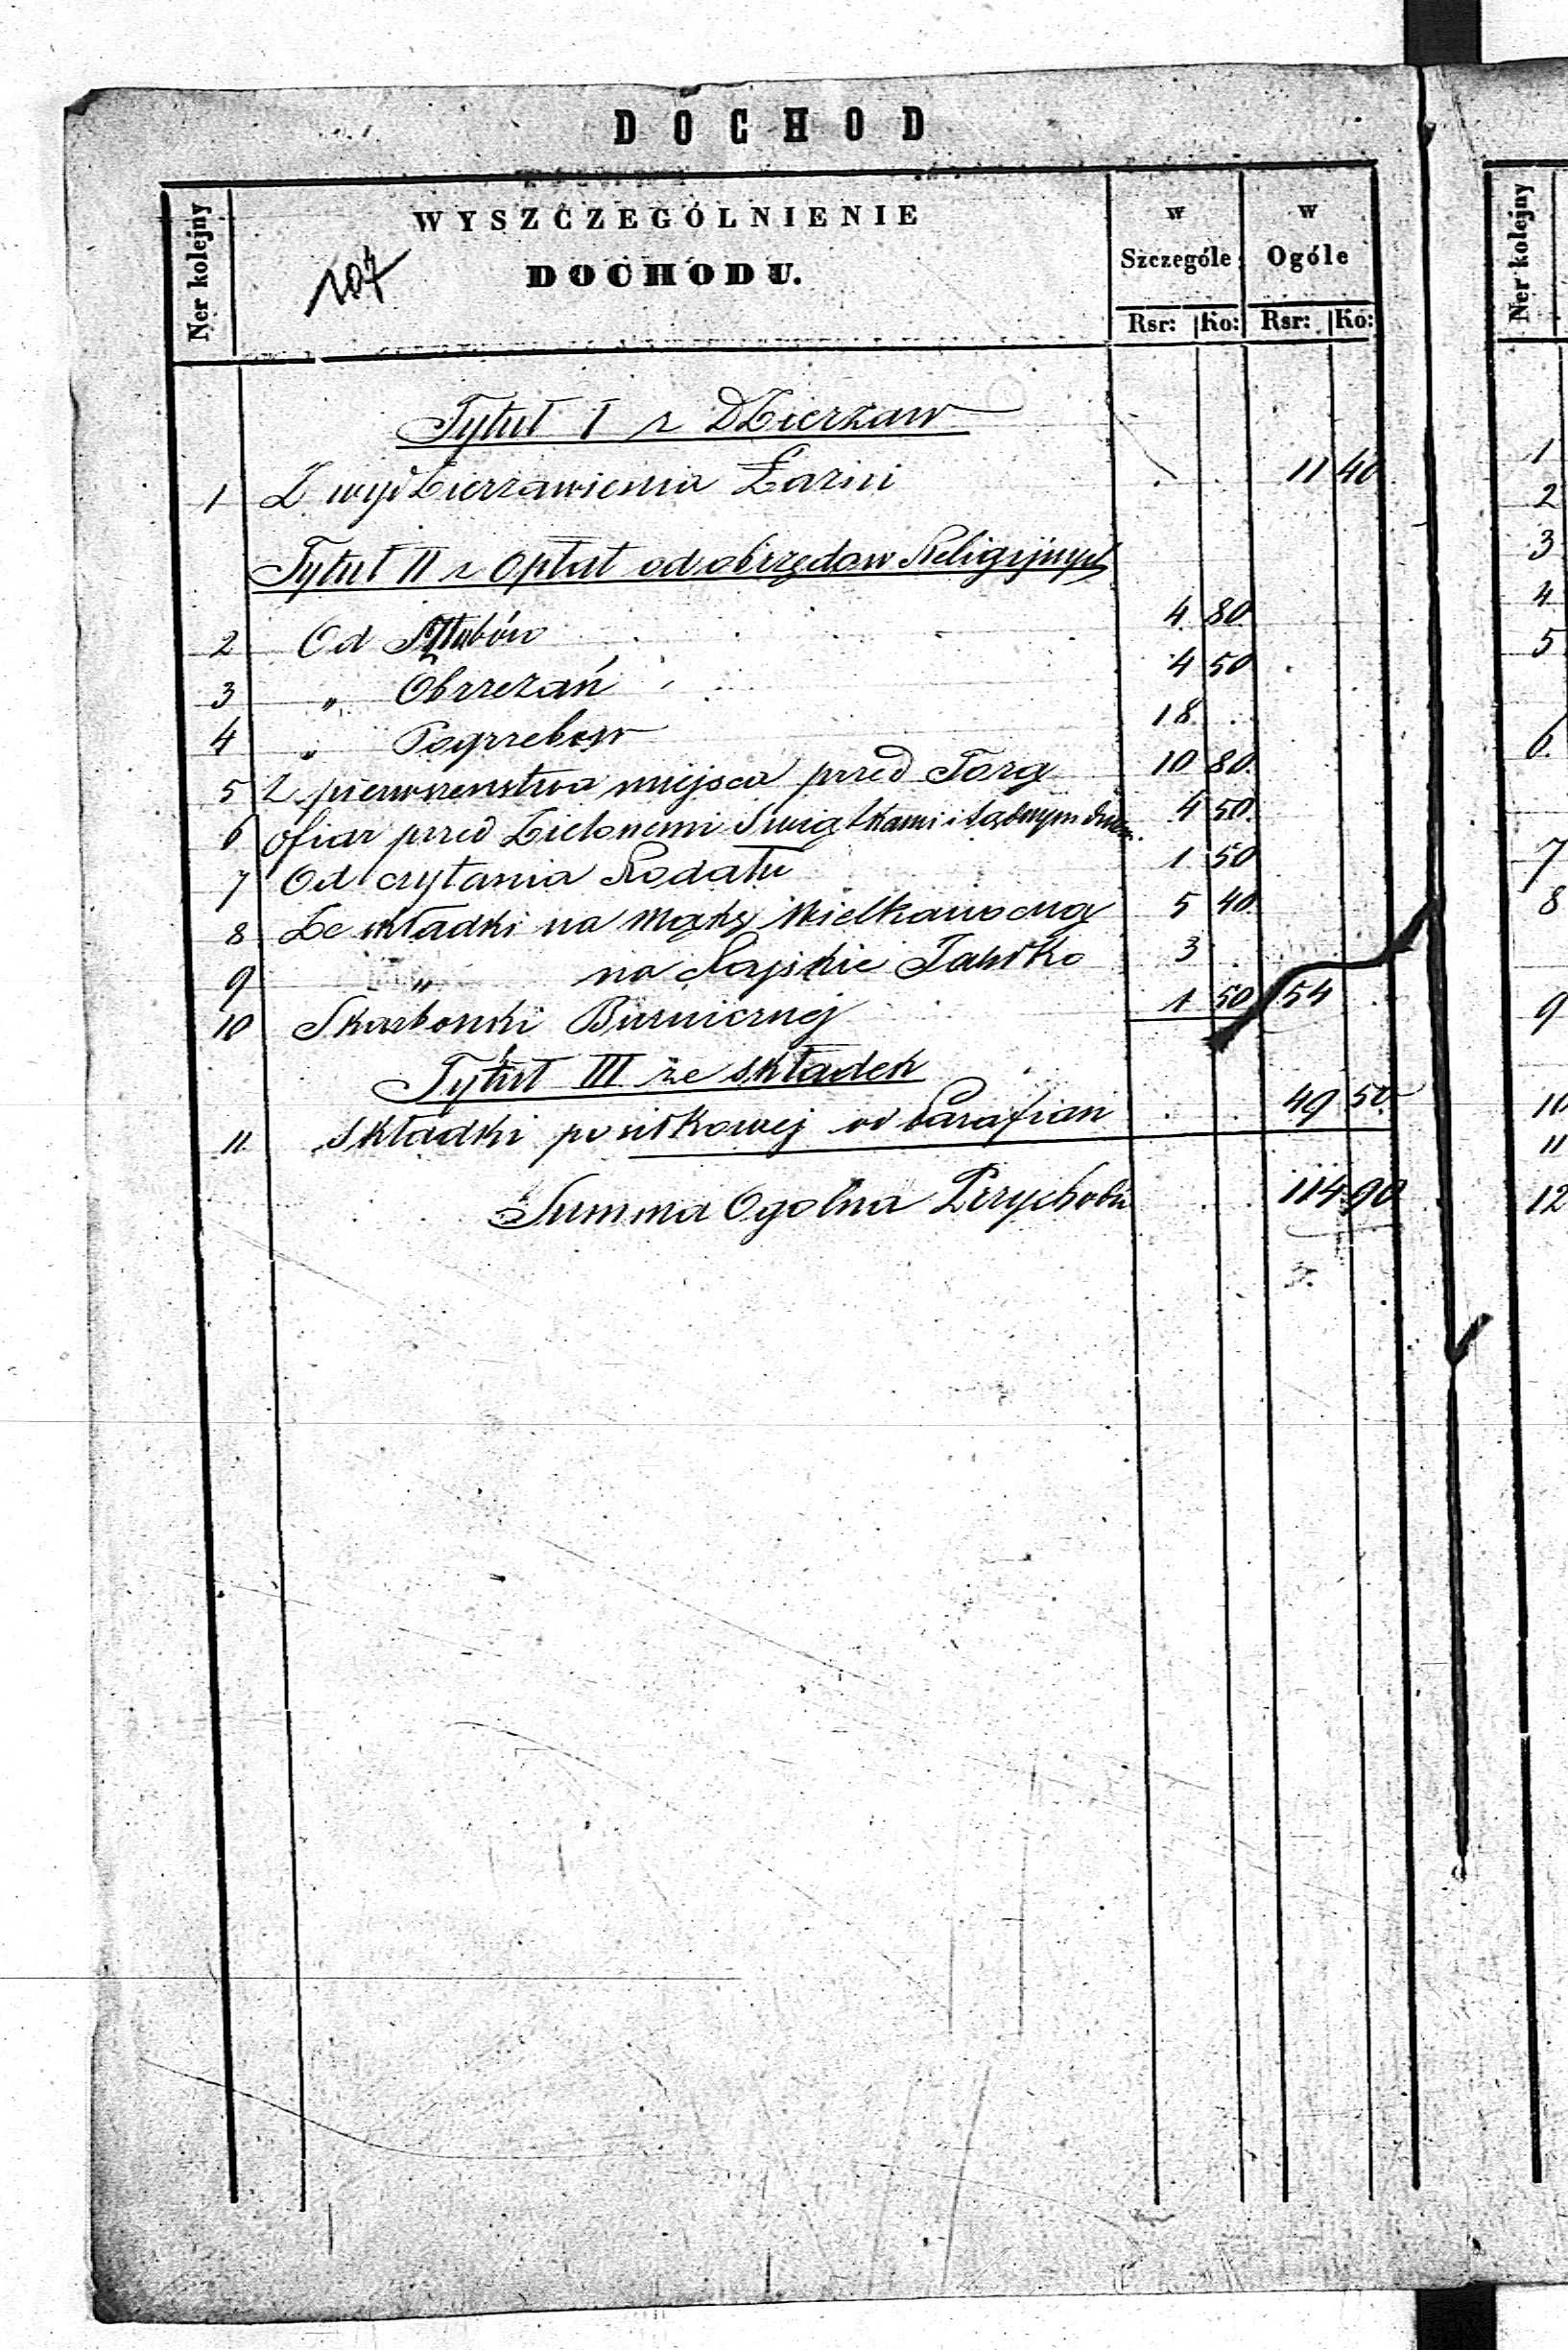 DOCHOD
Ner kolejny
WYSZCZEGÓLNIENIE
DOCHODU.
107
w Szczególe
w Ogóle
Rsr: Ko: Rsr: Ko:
Tytuł I z Dzierzaw
1 Z wydzierzawienia Łazni . . 11 40
Tytuł II z Opłat od obrzędow Religijnych
2 Od Szlubów 4 80
3 " Obrzezań 4 50
4 " Pogrzebow 18 .
5 Z pierwszenstwa miejsca przed Torą 10 80
6 Ofiar przed Zielonemi Swiątkami i Sądnym dniem 4 50
7 Od czytania Rodału 1 50
8 Ze składki na Mąkę Wielkanocną 5 40
9 " na Rajskie Jabłko 3 .
10 Skarbonki Buznicznej 1 50 54 .
Tytuł III ze składek
11 Składki posiłkowej od Parafian . . 49 50
Summa Ogolna Przychodu . . 114 90
Ner kolejny
1
2
3
4
5
6
7
8
9
10
11
12